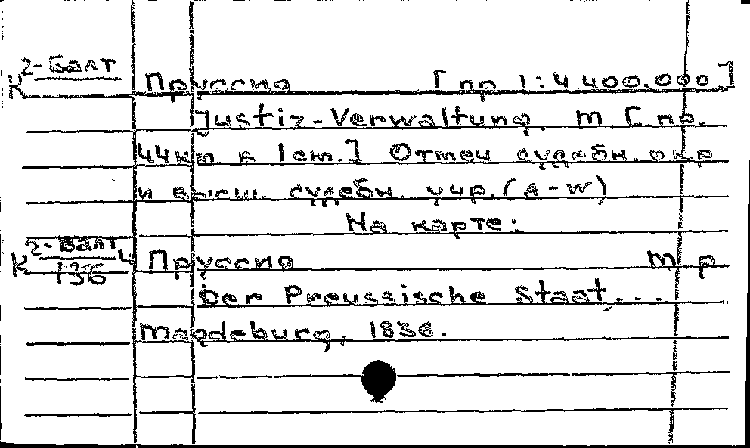 К 2-Балт Пруссия [пр 1:4 400.000]
Justiz-Verwaltung. M [пр.
44км в 1см.] Отмеч судебн. окр
и высш. судебн. учр. (a-w)
На карте:
К 2-Балт/136 4 Пруссия М р
Der Preussische Staat...
Magdeburg, 1836.